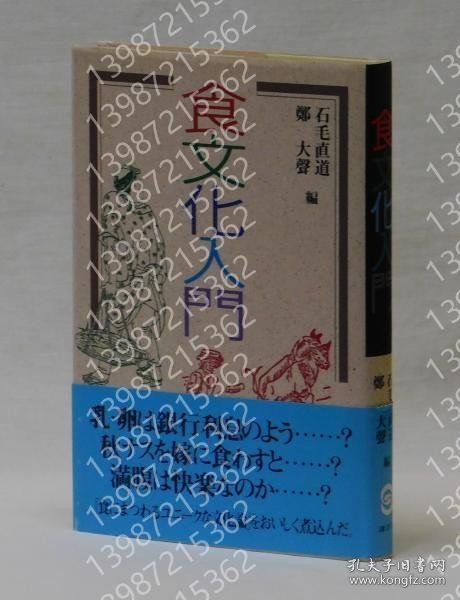 食文化入門
石毛直道
鄭 大聲 編
乳・卵は銀行利息のよう……?
秋ナスを嫁に食わすと……?
満腹は快楽なのか……?
食にまつわるユニークな文化談をおいしく煮込んだ。
食文化入門
鄭 大聲 編
13987215362
孔夫子旧书网
kongfz.com